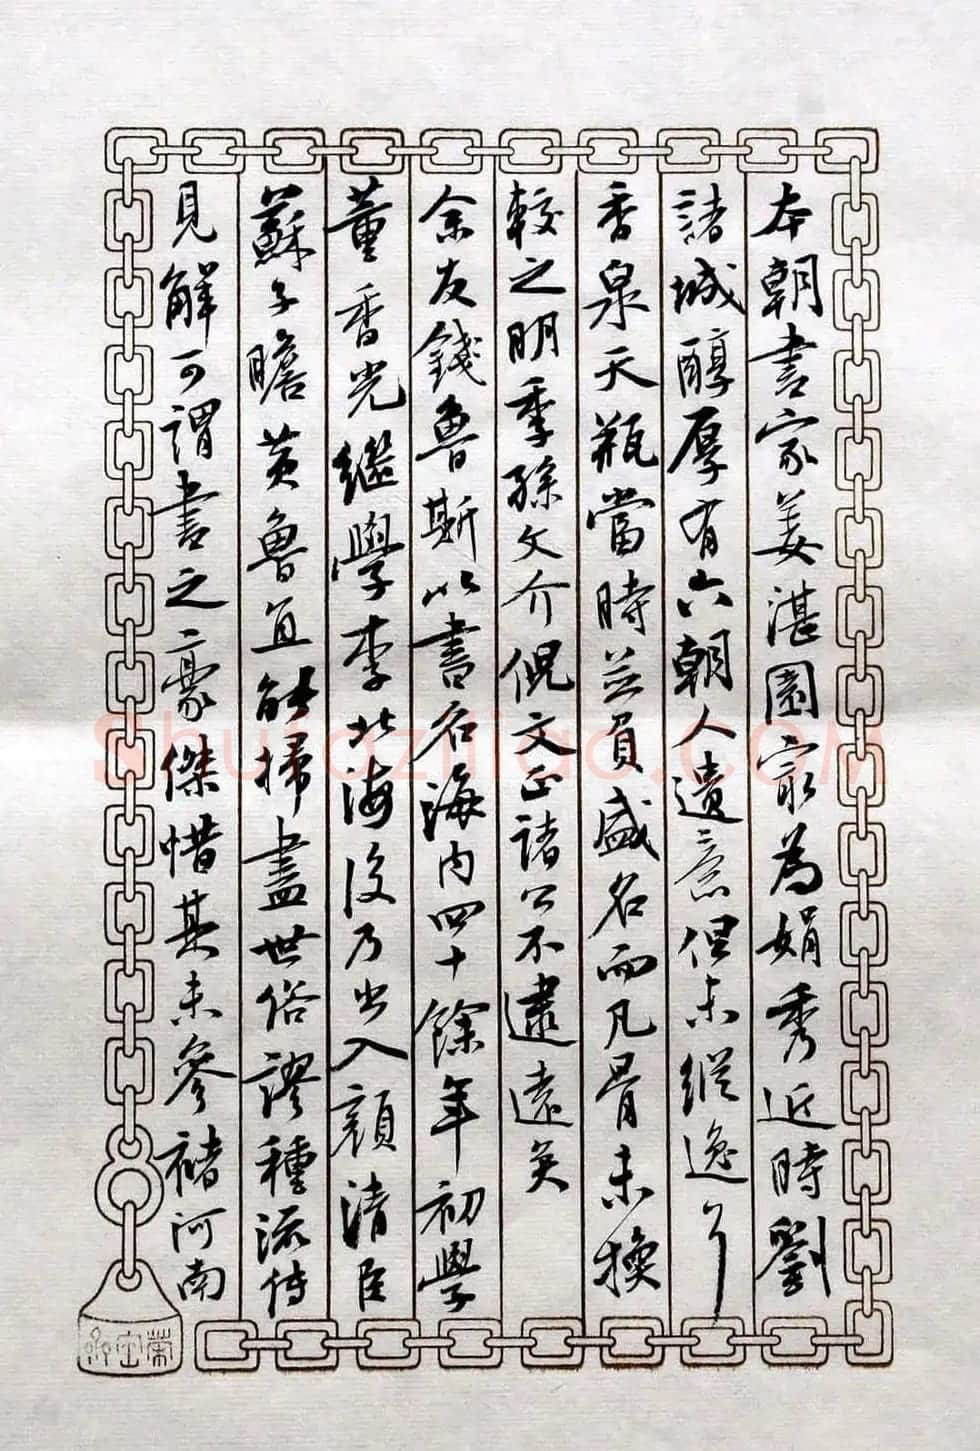 本朝書家姜湛園㝡為娟秀近時劉
諸城醇厚有六朝人遺意但未縱逸耳
香泉天瓶當時並負盛名而凡骨未換
較之明季孫文介倪文正諸公不逮遠矣
余友錢魯斯以書名海內四十餘年初學
董香光繼學李北海後乃出入顏清臣
蘇子瞻黃魯直能掃盡世俗謬種流傳
見解可謂書之豪傑惜其未參褚河南
Shufaziliao.com